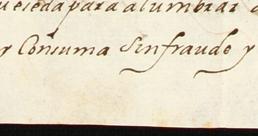 se da para alumbrar
y Consuma Sin fraude y